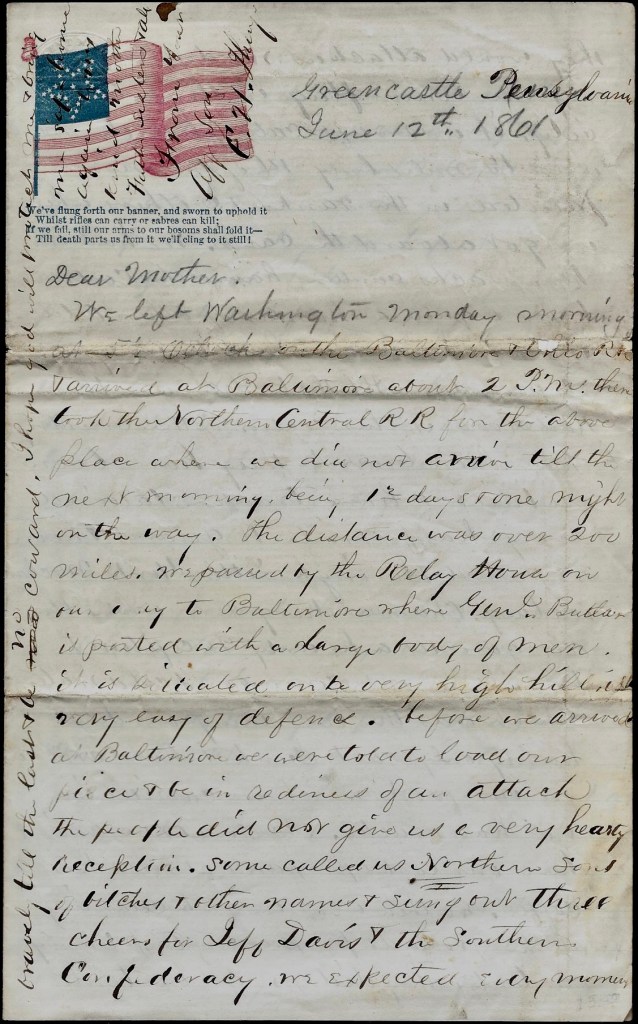 Greencastle Pennsylvania
June 12th. 1861
We've flung forth our banner, and sworn to uphold it
Whilst rifles can carry or sabres can kill;
If we fall, still our arms to our bosoms shall fold it—
Till death parts us from it we'll cling to it still!
Dear Mother.
We left Washington Monday morning
at 5½ on the Baltimore & Ohio R R
& arrived at Baltimore about 2 P.M. then
took the Northern Central R R for the above
place where we did not arrive till the
next morning. being 1½ days & one night
on the way. The distance was over 200
miles. we passed by the Relay House on
our way to Baltimore where Genl. Butler
is posted with a large body of men.
it is situated on a very high hill &
very easy of defence. before we arrived
at Baltimore we were told to load our
piece & be in rediness of an attack
the people did not give us a very hearty
reception. Some called us Northern Sons
of bitches & other names & sung out three
cheers for Jeff Davis & the Southern
Confederacy. we expected every moment
bravely till the last & be no coward. I hope god will protect me & bring
me safe home
again
From your
Aff son